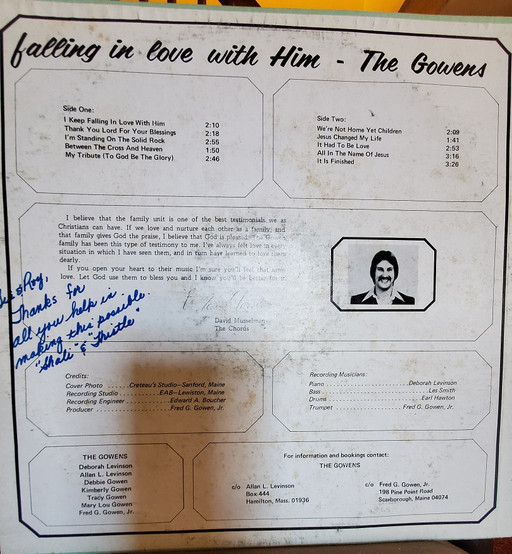 falling in love with Him - The Gowens
Side One:
I Keep Falling In Love With Him 2:10
Thank You Lord For Your Blessings 2:18
I'm Standing On The Solid Rock 2:55
Between The Cross And Heaven 1:50
My Tribute (To God Be The Glory) 2:46
Side Two:
We're Not Home Yet Children 2:09
Jesus Changed My Life 1:41
It Had To Be Love 2:53
All In The Name Of Jesus 3:16
It Is Finished 3:26
I believe that the family unit is one of the best testimonials we as
Christians can have. If we love and nurture each other as a family, and
that family gives God the praise, I believe that God is pleased. The
family has been this type of testimony to me. I've always felt love in every
situation in which I have seen them, and in turn have learned to love them
dearly.
If you open your heart to their music I'm sure you'll feel that same
love. Let God use them to bless you and I know you'll be better for it.
David
The Chords
Roy,
Thanks for
all you help in
making this possible.
"Shali" & "Thistle"
Credits:
Cover Photo ......Creteau's Studio-Sanford, Maine
Recording Studio ..........EAB-Lewiston, Maine
Recording Engineer ............Edward A. Boucher
Producer ....................Fred G. Gowen, Jr.
Recording Musicians:
Piano ........................Deborah Levinson
Bass ..............................Les Smith
Drums ...........................Earl Hawton
Trumpet .....................Fred G. Gowen, Jr.
THE GOWENS
Deborah Levinson
Allan L. Levinson
Debbie Gowen
Kimberly Gowen
Trady Gowen
Mary Lou Gowen
Fred G. Gowen, Jr.
For information and bookings contact:
THE GOWENS
c/o Allan L. Levinson
Box 444
Hamilton, Mass. 01936
c/o Fred G. Gowen, Jr.
198 Pine Point Road
Scarborough, Maine 04074